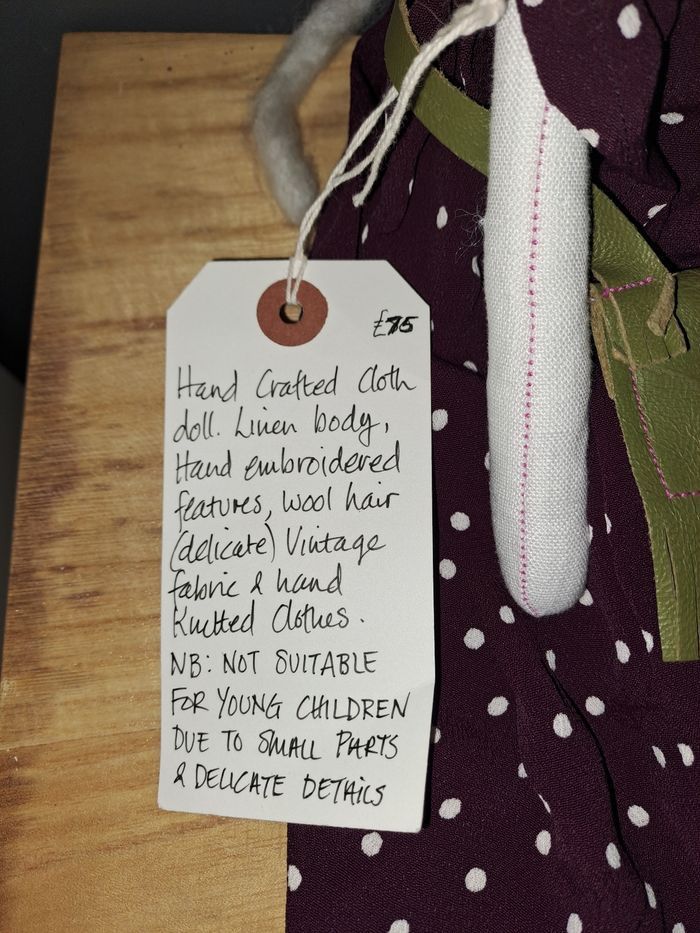 £75
Hand Crafted Cloth
doll. Linen body,
Hand embroidered
features, wool hair
(delicate) Vintage
fabric & hand
Knitted Clothes.
NB: NOT SUITABLE
FOR YOUNG CHILDREN
DUE TO SMALL PARTS
& DELICATE DETAiLS